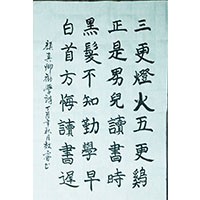 三更燈火五更鷄
正是男兒讀書時
黑髮不知勤學早
白首方悔讀書遲
顏真卿勸學詩